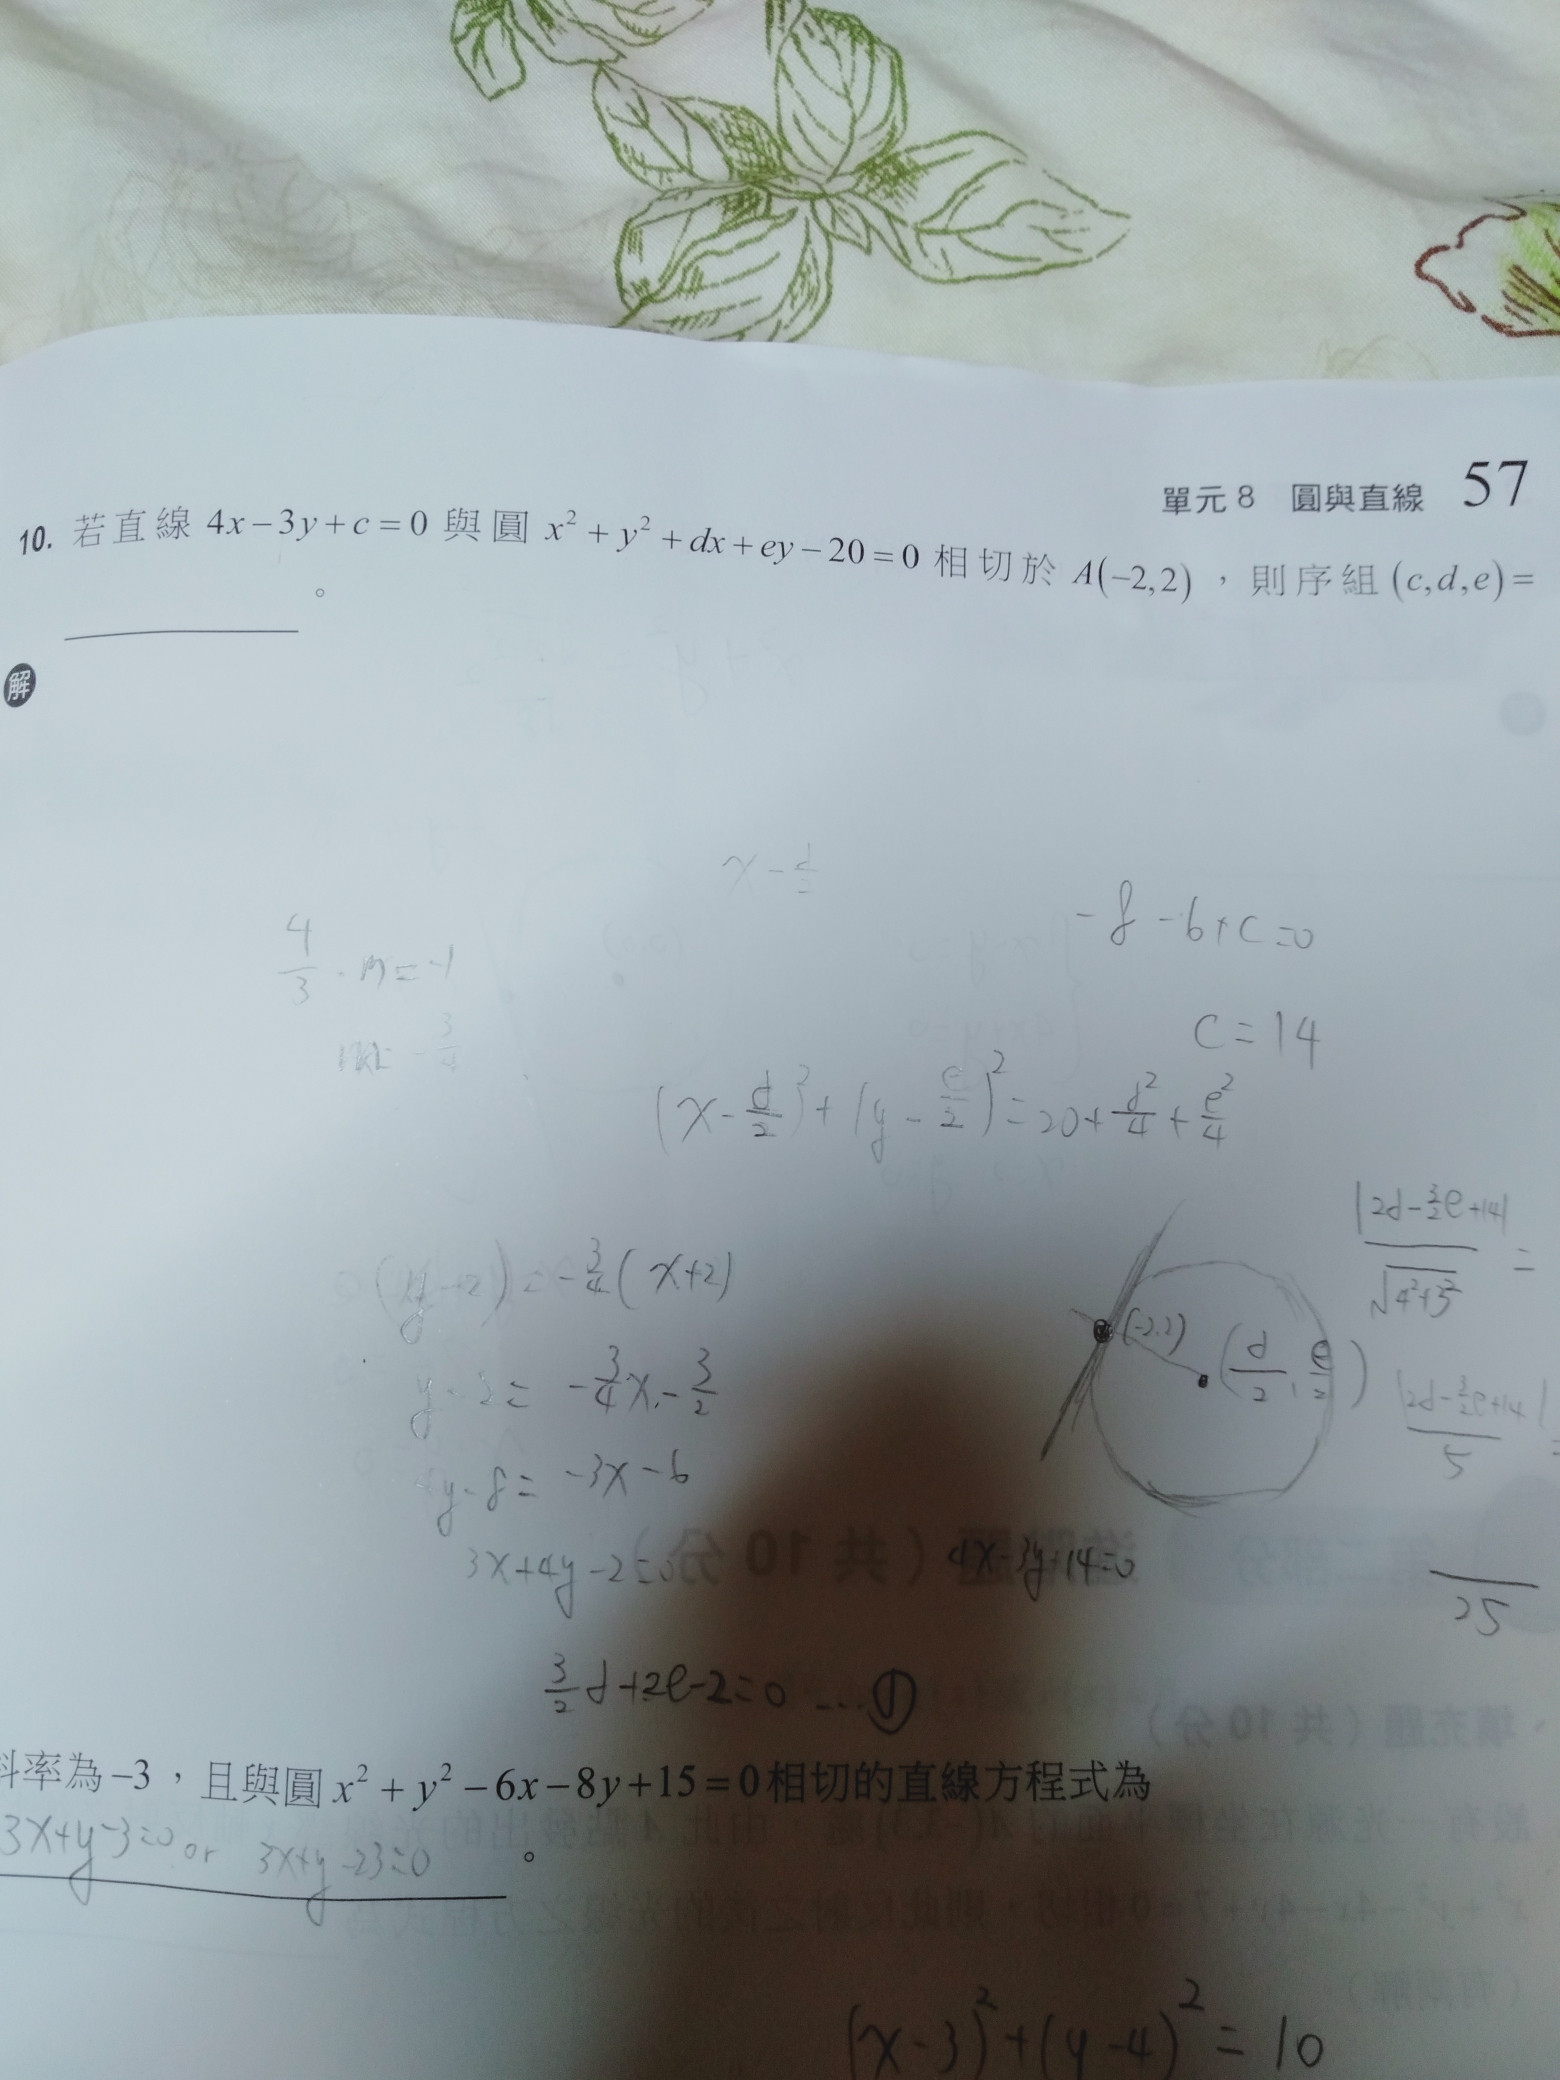 單元8 圓與直線 57
10. 若直線 4x-3y+c=0 與圓 x²+y²+dx+ey-20=0 相切於 A(-2,2)，則序組(c,d,e)=
。
解
x-d/2
-8-6+c=0
4/3·m=-1
c=14
(x-d/2)²+(y-e/2)²=20+d²/4+e²/4
|2d-3/2e+14|/√4²+3² =
=-3/4(x+2)
(-2,2)
(d/2, e/2)
y-2=-3/4x-3/2
|2d-3/2e+14|/5 =
y-8=-3x-6
3x+4y-2=0
4x-3y+14=0
25
3/2d+2e-2=0 ...①
斜率為-3，且與圓 x²+y²-6x-8y+15=0相切的直線方程式為
3x+y-3=0 or 3x+y-23=0 。
(x-3)²+(y-4)²=10